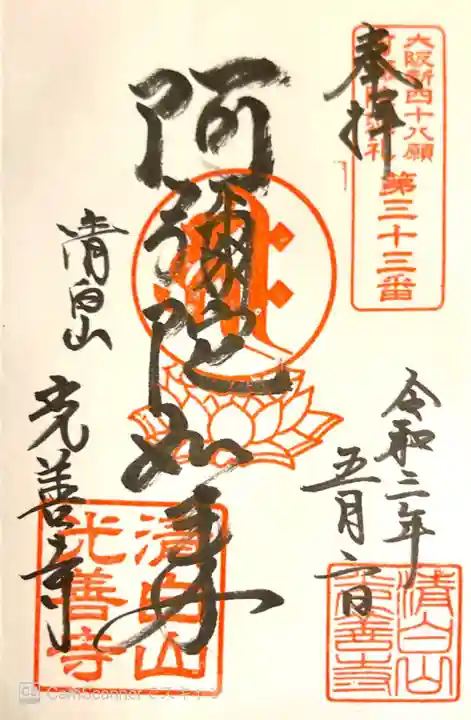 大阪新四十八願
第三十三番
奉拝
阿彌陀如来
清白山
光善寺
令和三年
五月六日
清白山
光善寺
清白山
光善寺
CamScanner でスキャン